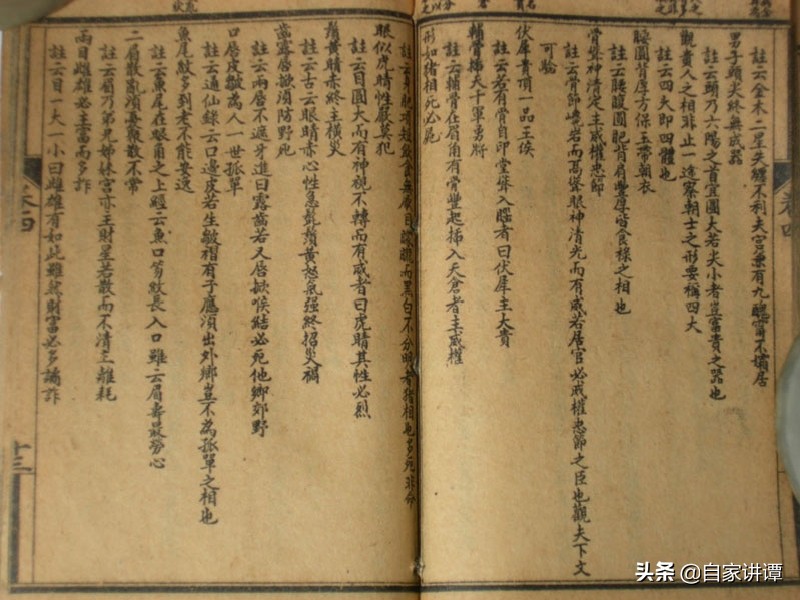 註云金木二星失轄不利夫宮無有九醜當不孀居
男子頭尖終無成器
註云頭乃六陽之首宜圓大若尖小者豈富貴之器也
觀貴人之相非止一途察朝士之形要稱四大
註云四大即四體也
腰圓背厚方保玉帶朝衣
註云腰腹圓肥背肩豐厚皆食祿之相也
骨聳神清定主威權忠節
註云骨節峥岩而高聳眼神清光而有威若居官必威權忠節之臣也觀夫下文
可驗
伏犀貴頂一品王侯
註云若有骨自印堂聳入腦者曰伏犀主大貴
輔骨揷天千軍勇將
註云輔骨在眉角有骨豐起揷入天倉者主威權
形如猪相死必屍
註云身肥項短飲食無厭目朦朧而黑白不分明者猪相也多死非命
眼似虎睛性嚴莫犯
註云目圓大而有神視不轉而有威者曰虎睛其性必烈
鬚黃睛赤終主橫災
註云古云眼睛赤心性急髭鬚黃怒氣强終招災禍
齒露唇掀須防野死
註云兩唇不遮牙進曰露齒若又唇掀喉結必死他鄉郊野
口唇皮皺為人一世孤單
註云通仙錄云口邊皮若生皺褶有子應須出外鄉豈不為孤單之相也
魚尾紋多到老不能安逸
註云魚尾在眼角之上經云魚口笏紋長入口雖云眉壽最勞心
二眉散亂須憂聚散不常
註云眉乃弟兄姊妹宮亦主財星若散而不清主離耗
兩目雌雄必主富而多詐
註云目一大一小曰雌雄有如此雖然財富必多譎詐
卷四
十三
头条 @自家讲谭